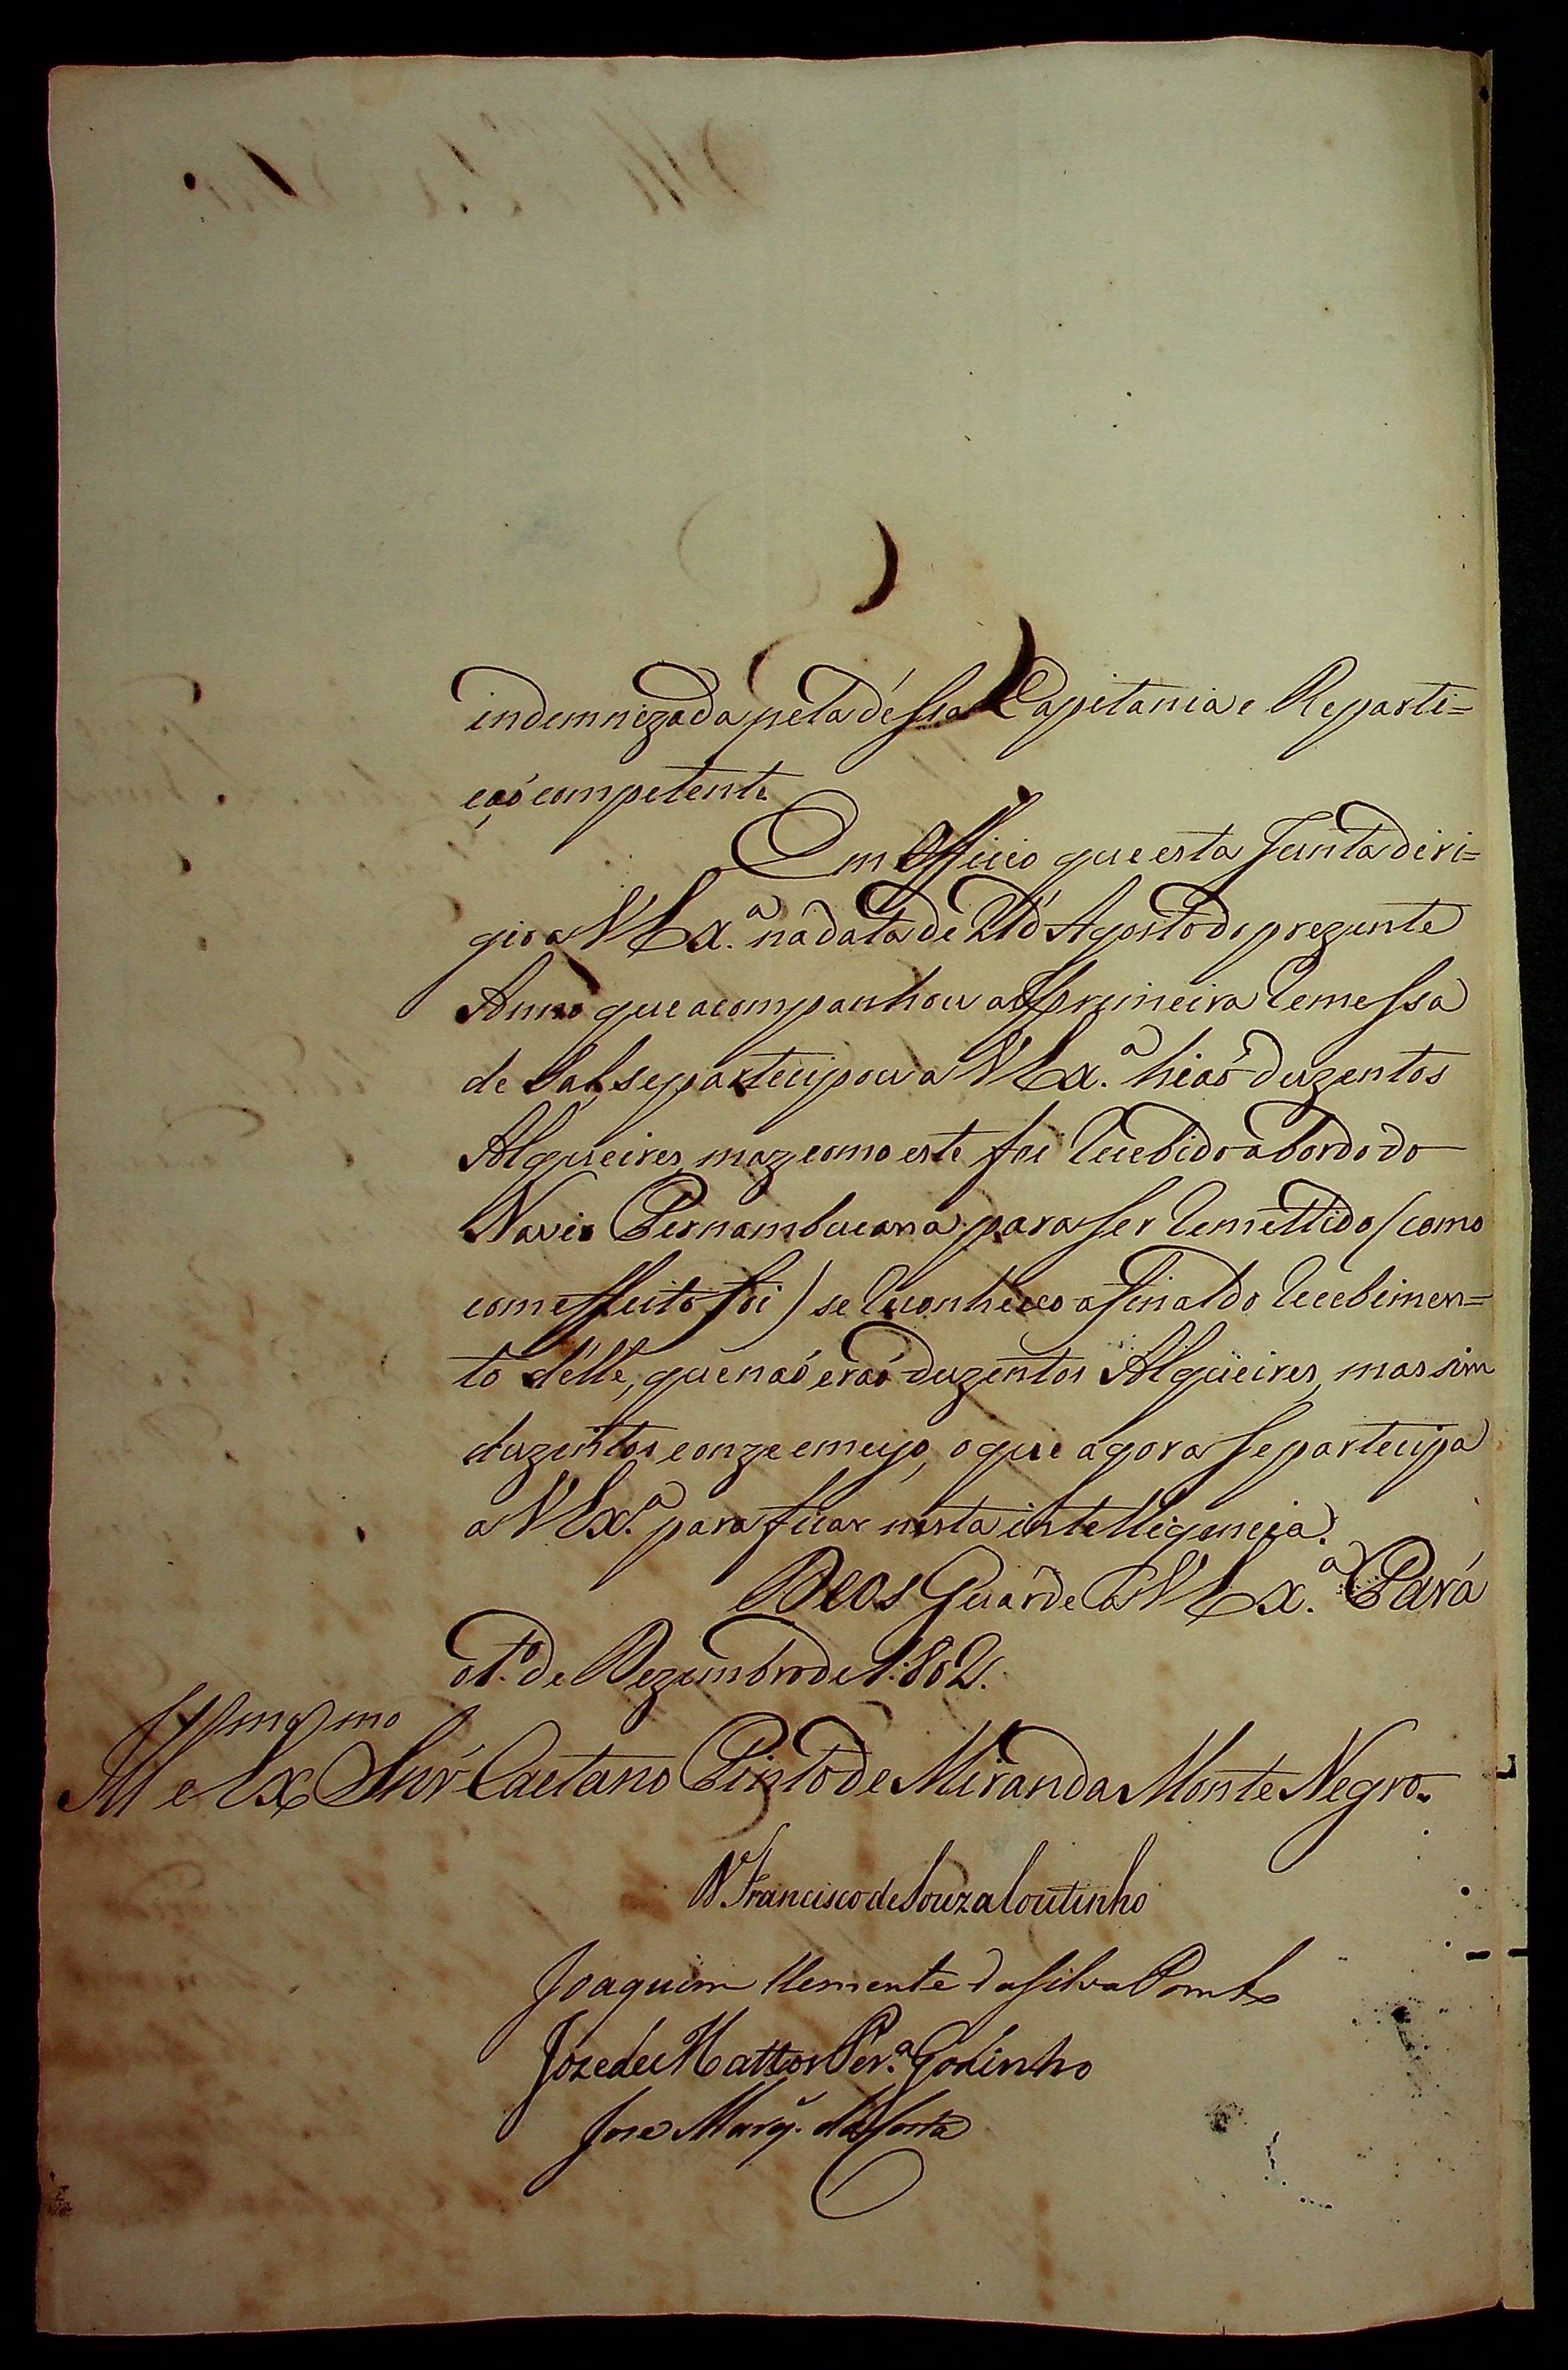 indemnizada pela déssa Capitania e Reparti=
çaõ competente.
Em Officio que esta Junta diri=
gio a V Ex.ª na data de 21 d'Agosto do prezente
Anno que acompanhou a primeira Remessa
de Sal, se partecipou a V Ex.ª hiaõ duzentos
Alqueires, maz como este foi Recebido abordo do
Navio Pernambucana para ser Remettido (como
com effeito foi) se Reconheceo afinal do Recebimen=
to délle, que naõ eraõ duzentos Alqueires, mas sim
duzentos e onze e meyo, o que agora se partecipa
a V Ex.ª para ficar nesta intelligencia.
Deos Guarde a V Ex.ª Pará
de Dezembro de 1:802.
Ill.mo e Ex.mo Snr' Caetano Pinto de Miranda Monte Negro.
D. Francisco de Souza Coutinho
Joaquim Clemente da Silva Pombo
Joze de Mattos Per.ª Godinho
Jose Marq. da Costa